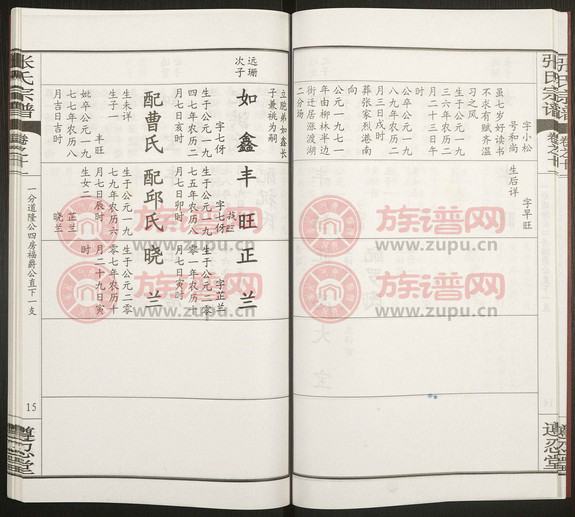 张氏宗谱
卷之十
遵忍堂
字小松
号和尚
虽七岁好读书
不求有赋齐温
习之风
生于公元一九
三六年农历二
月二十三日午
时
公元一九
八九年农历二
月三日戌时
葬张家烈港南
向
公元一九七一
年由柳林半边
街迁居涨渡湖
二分场
生后详
字早旺
族谱网
www.zupu.cn
族谱网
www.zupu.cn
远珊
次子
如鑫
立胞弟如鑫长
子兼祧为嗣
字七伢
生于公元一九
四七年农历二
月七日亥时
配曹氏
生未详
生子一
丰旺
妣卒公元一九
七七年农历八
月吉日吉时
丰旺
字七伢
生于公元一九
七五年农历二
月七日卯时
配邱氏
生于公元一九
七九年农历六
月七日辰时
生女二
芷兰
晓兰
正兰
字芷兰
生于公元二零
零一年农历二
月七日寅时
晓兰
生于公元二零
零七年农历十
月二十九日寅
时
族谱网
www.zupu.cn
族谱网
www.zupu.cn
张氏宗谱
卷之十
一分道隆公四房福爵公直下一支
15
遵忍堂